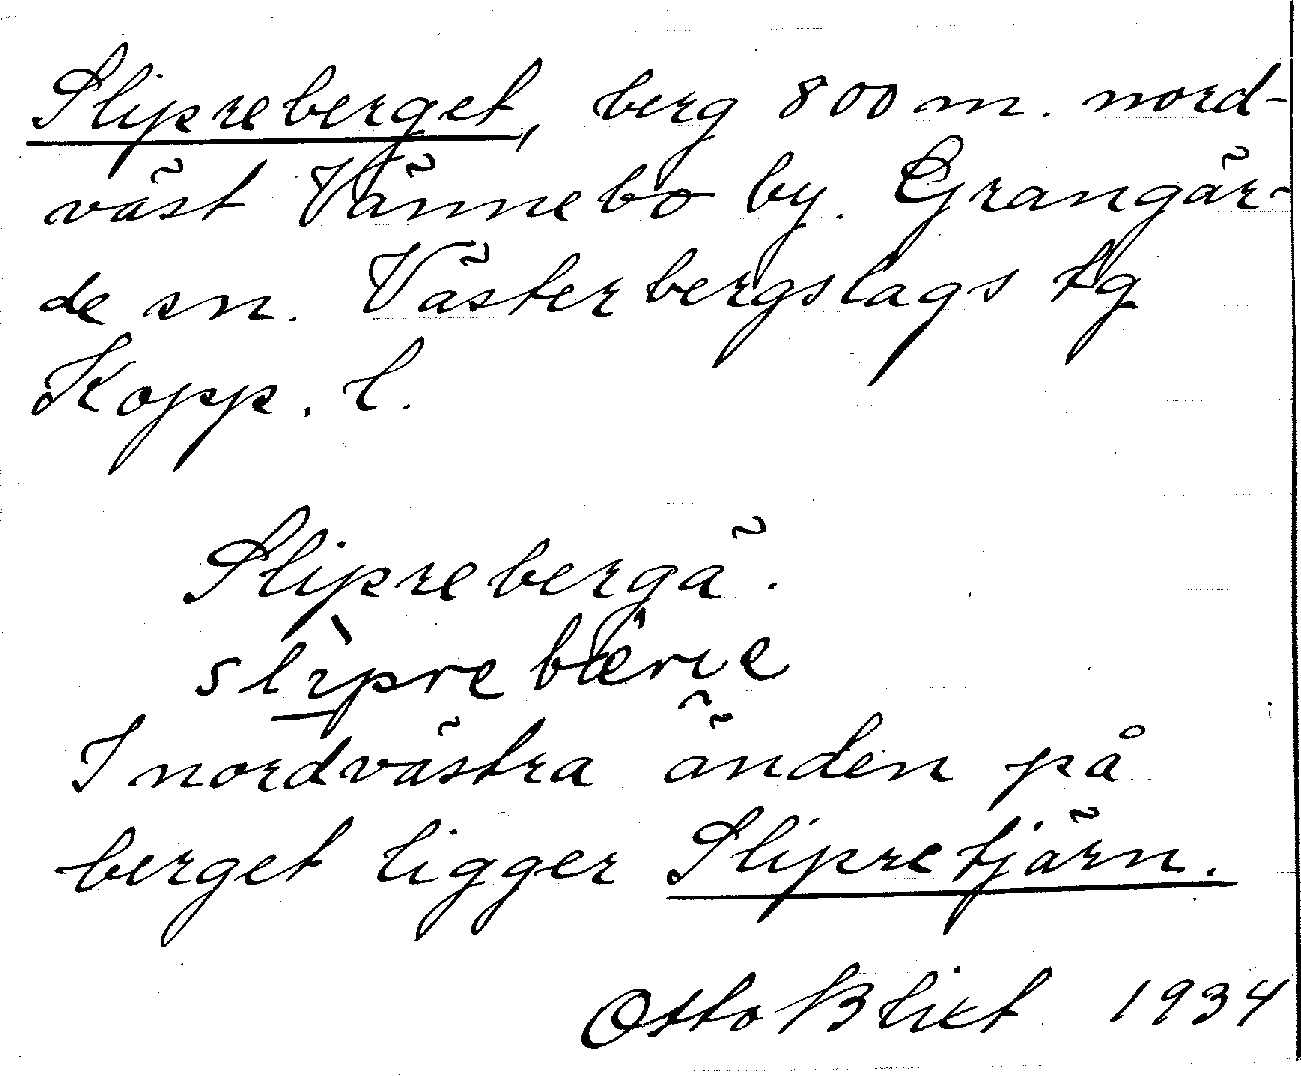 Slipreberget, berg 800 m. nord-
väst Vännebo by. Grangär-
de sn. Västerbergslags tg
Kopp. l.
Sliprebergä.
slìpre bærıe
I nordvästra änden på
berget ligger Slipretjärn.
Otto Blixt 1934